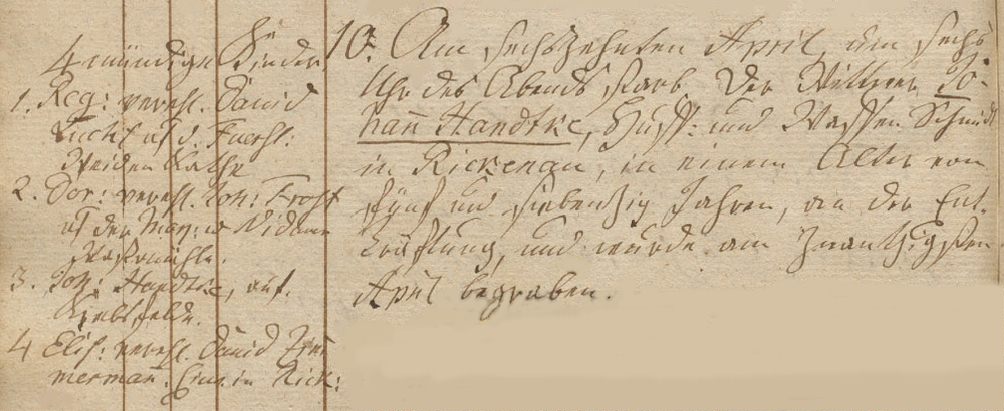 4 mündige Kinder
1. Reg: verehl. David
Lucht auf d. Fürstl:
Weiden Kathe
2. Dor: verehl. Joh: Frost
auf der
3. Joh: Handtke, auf
Krebsfelde.
4 Elis: verehl. David Zim
merman: Einw. in Rick:
10. Am sechszehnten April, um sechs
Uhr des Abends starb. Der Wittwer Jo-
hann Handtke, Huff: und Waffen Schmidt
in Rickenau, in einem Alter von
fünf und siebenzig Jahren, an der Ent-
kräftung, und wurde am Zwantzigsten
April begraben.